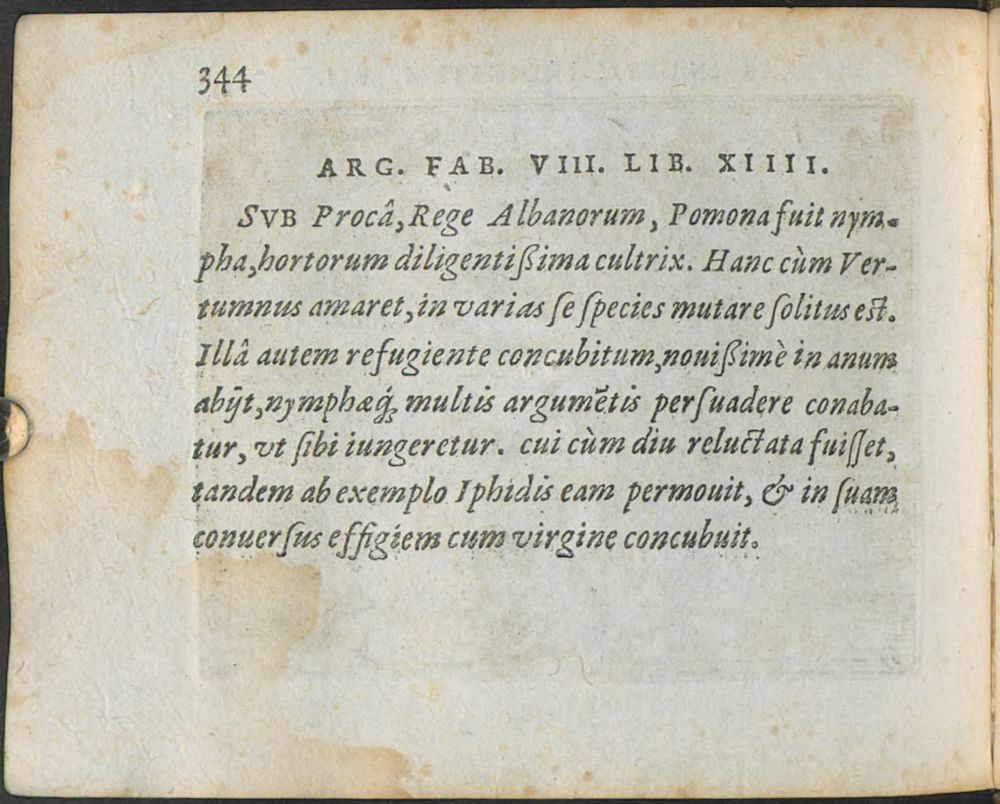 344
ARG. FAB. VIII. LIB. XIIII.
SVB Procâ, Rege Albanorum, Pomona fuit nym-
pha, hortorum diligentißima cultrix. Hanc cùm Ver-
tumnus amaret, in varias ſe ſpecies mutare ſolitus est.
Illâ autem refugiente concubitum, nouißimè in anum
abijt, nymphæq́; multis argumẽtis perſuadere conaba-
tur, vt ſibi iungeretur. cui cùm diu reluctata fuiſſet,
tandem ab exemplo Iphidis eam permouit, & in ſuam
conuerſus effigiem cum virgine concubuit.